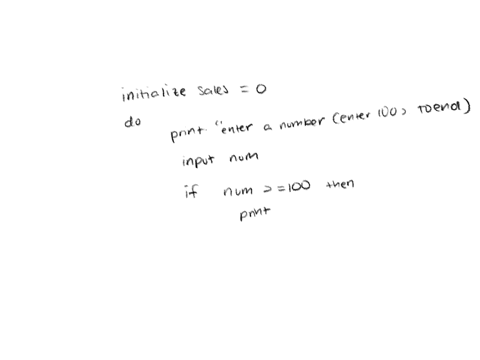 initialize sales = 0
do
print "enter a number (enter 100, TOend)
input num
if num >=100 then
print